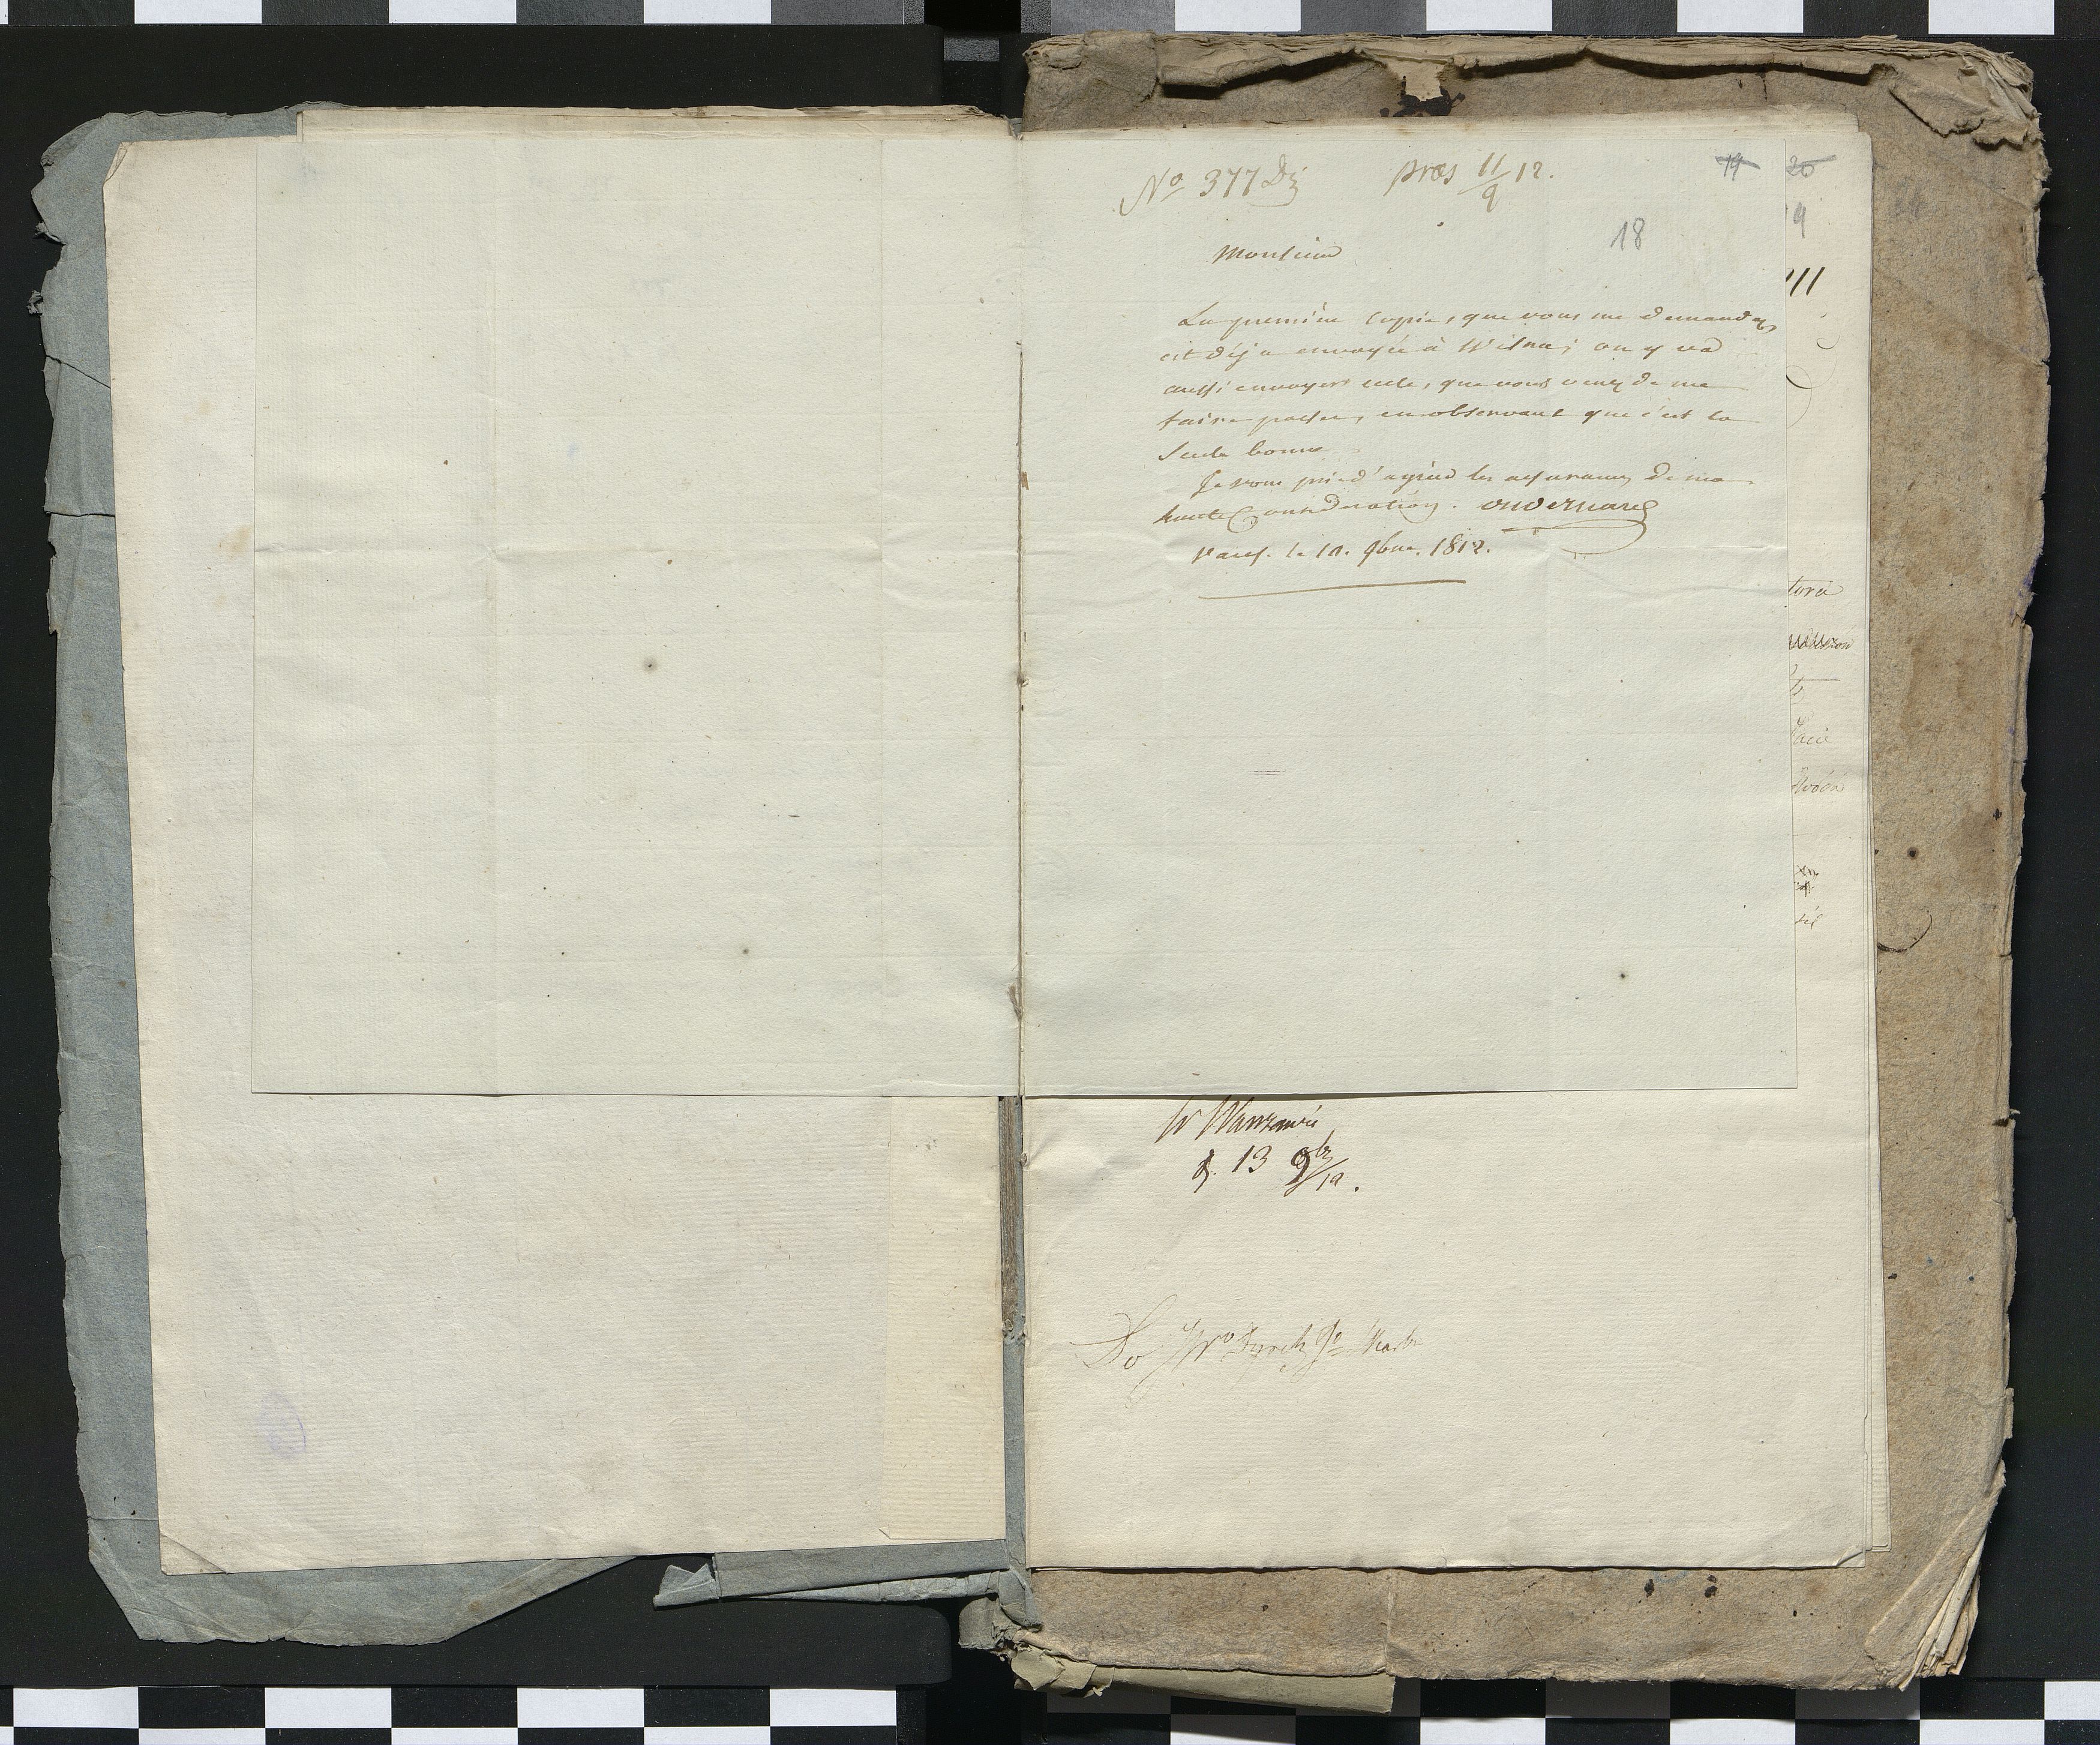 No 377 Dz præs 11/9 12.
19 20
18
Monsieur
La première copie, que vous me demandez,
est déja envoyée à Wilna; on y va
aussi envoyer celle, que vous venez de me
faire passer, en observant que c'est la
seule bonne
Je vous prie d'agréer les assurances de ma
haute Consideration.
Vars. le 11. 9bre. 1812.
W Warszawie
d. 13 9br/12.
Do JWo Dyrek Je Skarbu